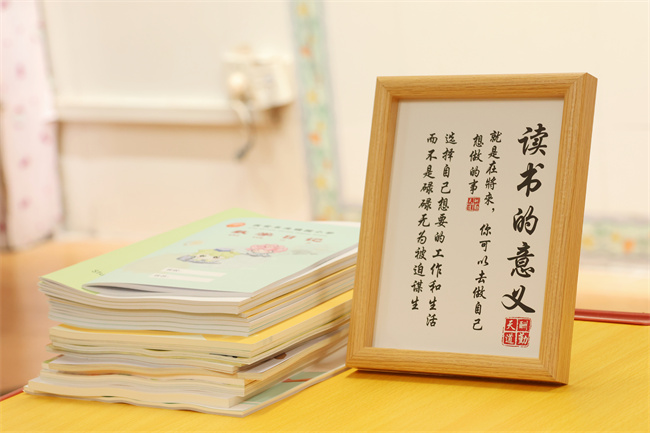 读书的意义
天道
酬勤
就是在將來，你可以去做自己
想做的事
选择自己想要的工作和生活
而不是碌碌无为被迫谋生
日记